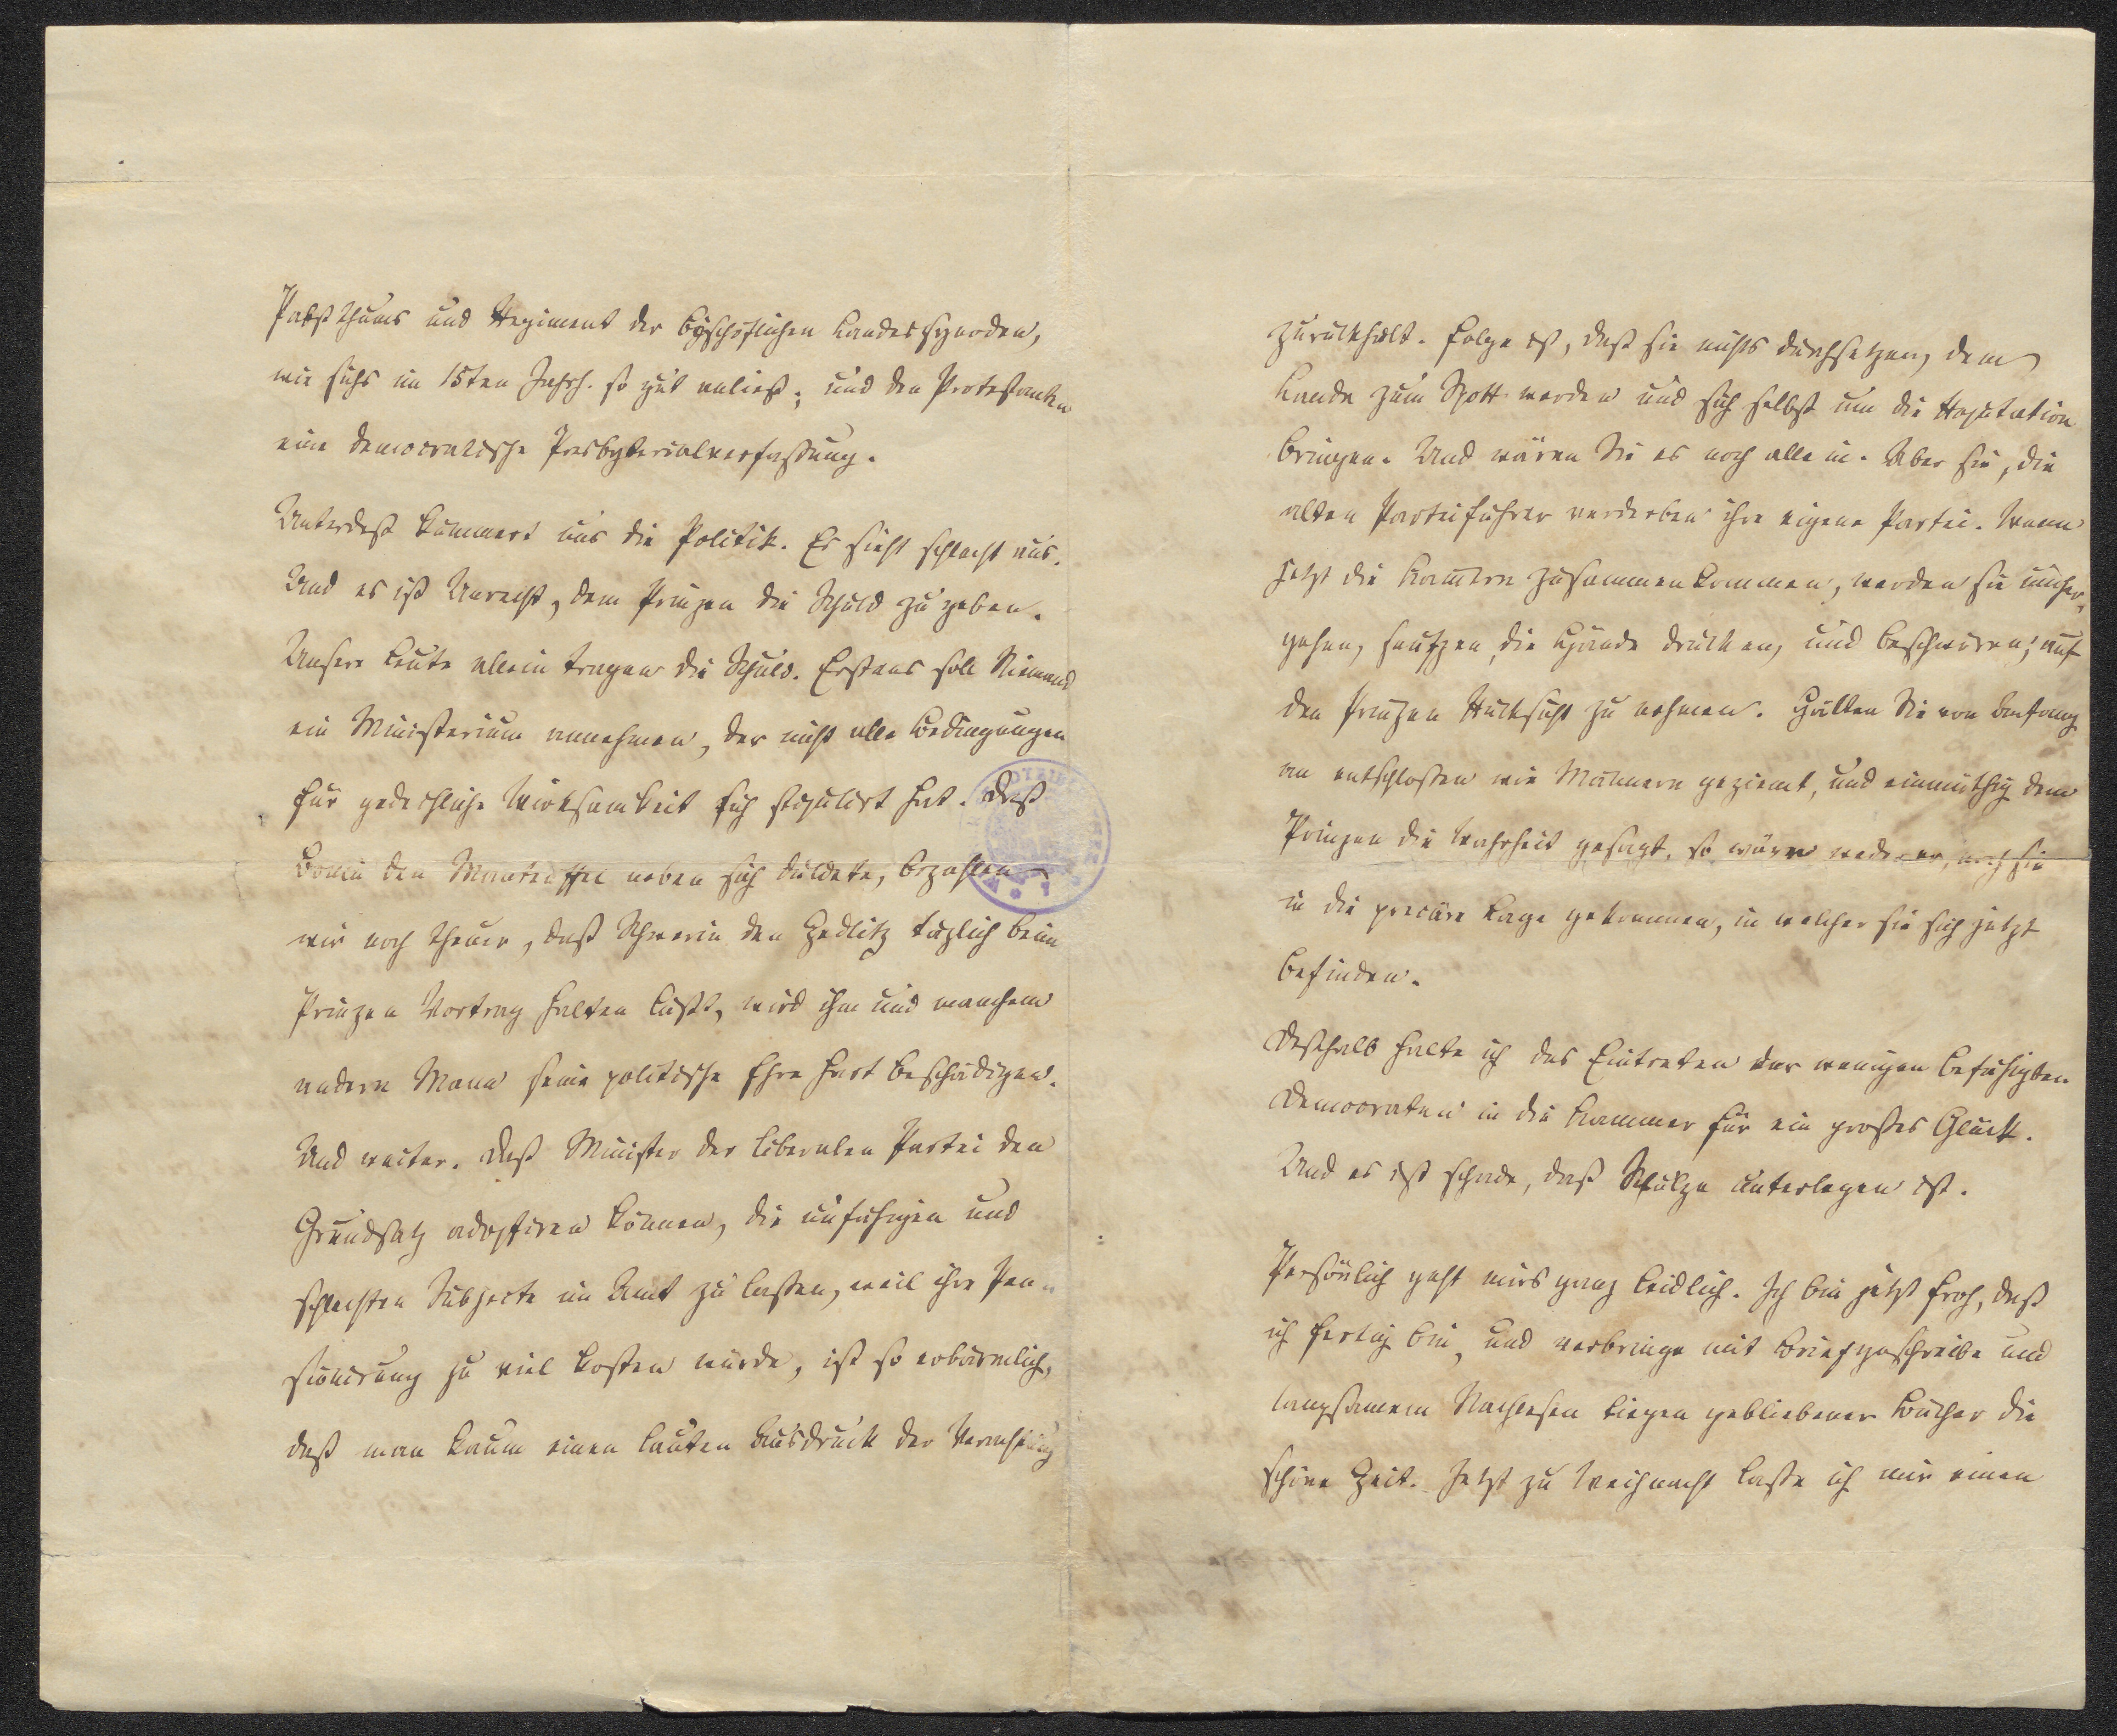 Pabstthums und Regiment der bischöflichen Landessynoden,
wie sichs im 15ten Jahrh. so gut anließ; und den Protestanten
eine democratische Presbyterialverfassung.
Unterdeß kümmert uns die Politik. Es sieht schlecht aus.
Und es ist Unrecht, dem Prinzen die Schuld zu geben.
Unsere Leute allein tragen die Schuld. Erstens soll Niemand
ein Ministerium annehmen, der nicht alle Bedingungen
für gedeihliche Wirksamkeit sich stipulirt hat. Daß
Bonin den Manteuffel neben sich duldete, bezahlen
wir noch theuer, daß Schwerin den Zedlitz täglich beim
Prinzen Vortrag halten läßt, wird ihm und manchem
andern Mann seine politische Ehre hart beschädigen.
Und weiter. Daß Minister der liberalen Partei den
Grundsatz adoptiren können, die unfähigen und
schlechten Subjecte im Amt zu lassen, weil ihre Pen-
sionirung zu viel kosten würde, ist so erbärmlich,
daß man kaum einen lauten Ausdruck der Verachtung
zurückhält. Folge ist, daß sie nichts durchsetzen, dem
Lande zum Spott werden und sich selbst um die Reputation
bringen. Und wären Sie es noch allein. Aber sie, die
alten Parteiführer verderben ihre eigene Partei. Wenn
jetzt die Kammern zusammenkommen, werden sie umher,
gehen, seufzen, die Hände drücken, und beschwören, auf
den Prinzen Rücksicht zu nehmen. Hätten Sie von Anfang
an entschlossen wie Männern geziemt, und einmüthig dem
Prinzen die Wahrheit gesagt, so wären weder er, noch sie
in die precäre Lage gekommen, in welcher sie sich jetzt
befinden.
Deßhalb halte ich das Eintreten der wenigen befähigten
Democraten in die Kammer für ein großes Glück.
Und es ist schade, daß Schulze unterlegen ist.
Persönlich geht mirs ganz leidlich. Ich bin jetzt froh, daß
ich fertig bin, und verbringe mit Briefgeschreibe und
langsamem Nachlesen liegen gebliebener Bücher die
schöne Zeit. Jetzt zu Weihnacht lasse ich mir einen